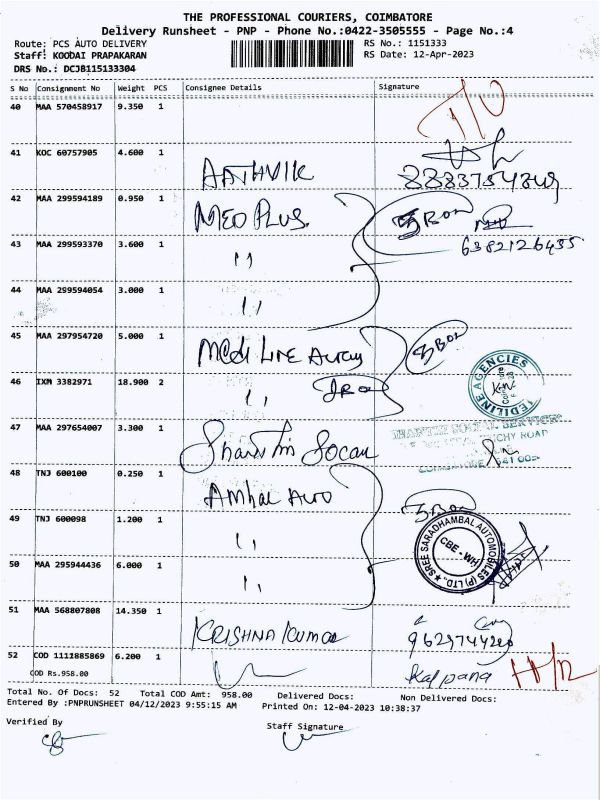 THE PROFESSIONAL COURIERS, COIMBATORE
Delivery Runsheet - PNP - Phone No.:0422-3505555 - Page No.:4
Route: PCS AUTO DELIVERY
RS No.: 1151333
Staff: KOODAI PRAPAKARAN
RS Date: 12-Apr-2023
DRS No.: DCJB115133304
S No Consignment No Weight PCS Consignee Details Signature
40 MAA 570458917 9.350 1
41 KOC 60757905 4.600 1 AATHVIK
42 MAA 299594189 0.950 1 MED PLUS 3 Box
43 MAA 299593370 3.600 1 " 6382126435
44 MAA 299594054 3.000 1 "
45 MAA 297954720 5.000 1 Medi Line Agency 3 Box
46 IXM 3382971 18.900 2 "
MEDILINE AGENCIES
47 MAA 297654007 3.300 1
SOCIAL SERVICE
48 TNJ 600100 0.250 1 Ambal Auto 3 Box
49 TNJ 600098 1.200 1 "
SREE SARADHAMBAL AUTOMOBILES (P) LTD.
CBE - WH
50 MAA 295944436 6.000 1 "
51 MAA 568807808 14.350 1 KRISHNA Kumar
52 COD 1112885869 6.200 1 Kalpana
COD Rs.958.00
Total No. Of Docs: 52 Total COD Amt: 958.00 Delivered Docs: Non Delivered Docs:
Entered By :PNPRUNSHEET 04/12/2023 9:55:15 AM Printed On: 12-04-2023 10:38:37
Verified By
Staff Signature